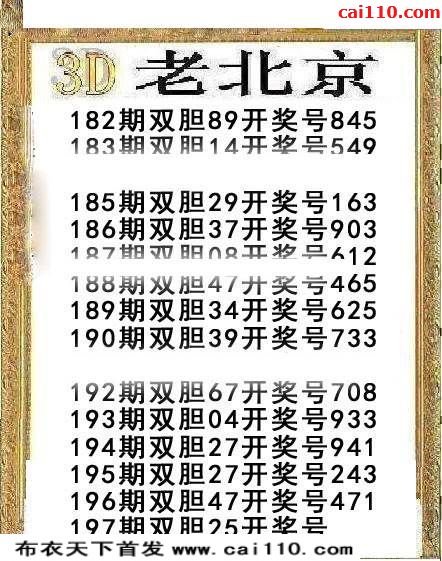 cai110.com
3D 老北京
182期双胆89开奖号845
183期双胆14开奖号549
185期双胆29开奖号163
186期双胆37开奖号903
187期双胆08开奖号612
188期双胆47开奖号465
189期双胆34开奖号625
190期双胆39开奖号733
192期双胆67开奖号708
193期双胆04开奖号933
194期双胆27开奖号941
195期双胆27开奖号243
196期双胆47开奖号471
197期双胆25开奖号
布衣天下首发 www.cai110.com